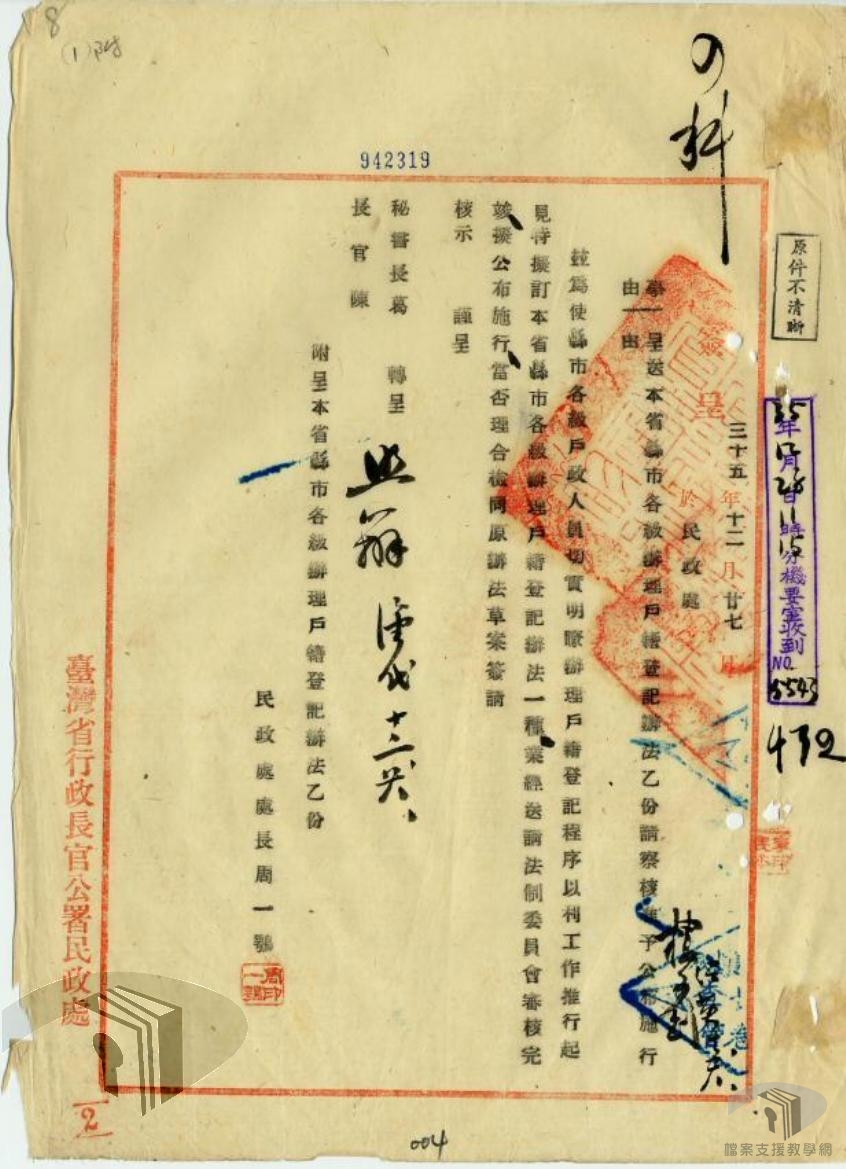 8
(1)
科
942319
原件不清晰
35年12月28日11時15分機要室收到
NO. 5543
472
簽呈
三十五年十二月廿七日
於民政處
事由 一 呈送本省縣市各級辦理戶籍登記辦法乙份請察核准予公布施行由
茲為使縣市各級戶政人員切實明瞭辦理戶籍登記程序以利工作推行起
見特擬訂本省縣市各級辦理戶籍登記辦法一種業經送請法制委員會審核完
竣擬公布施行當否理合檢同原辦法草案簽請
核示 謹呈
秘書長葛 轉呈
長官陳
照辦
代 十二、
附呈本省縣市各級辦理戶籍登記辦法乙份
民政處處長周一鶚
周一鶚印
臺灣省行政長官公署民政處
2
004
檔案支援教學網